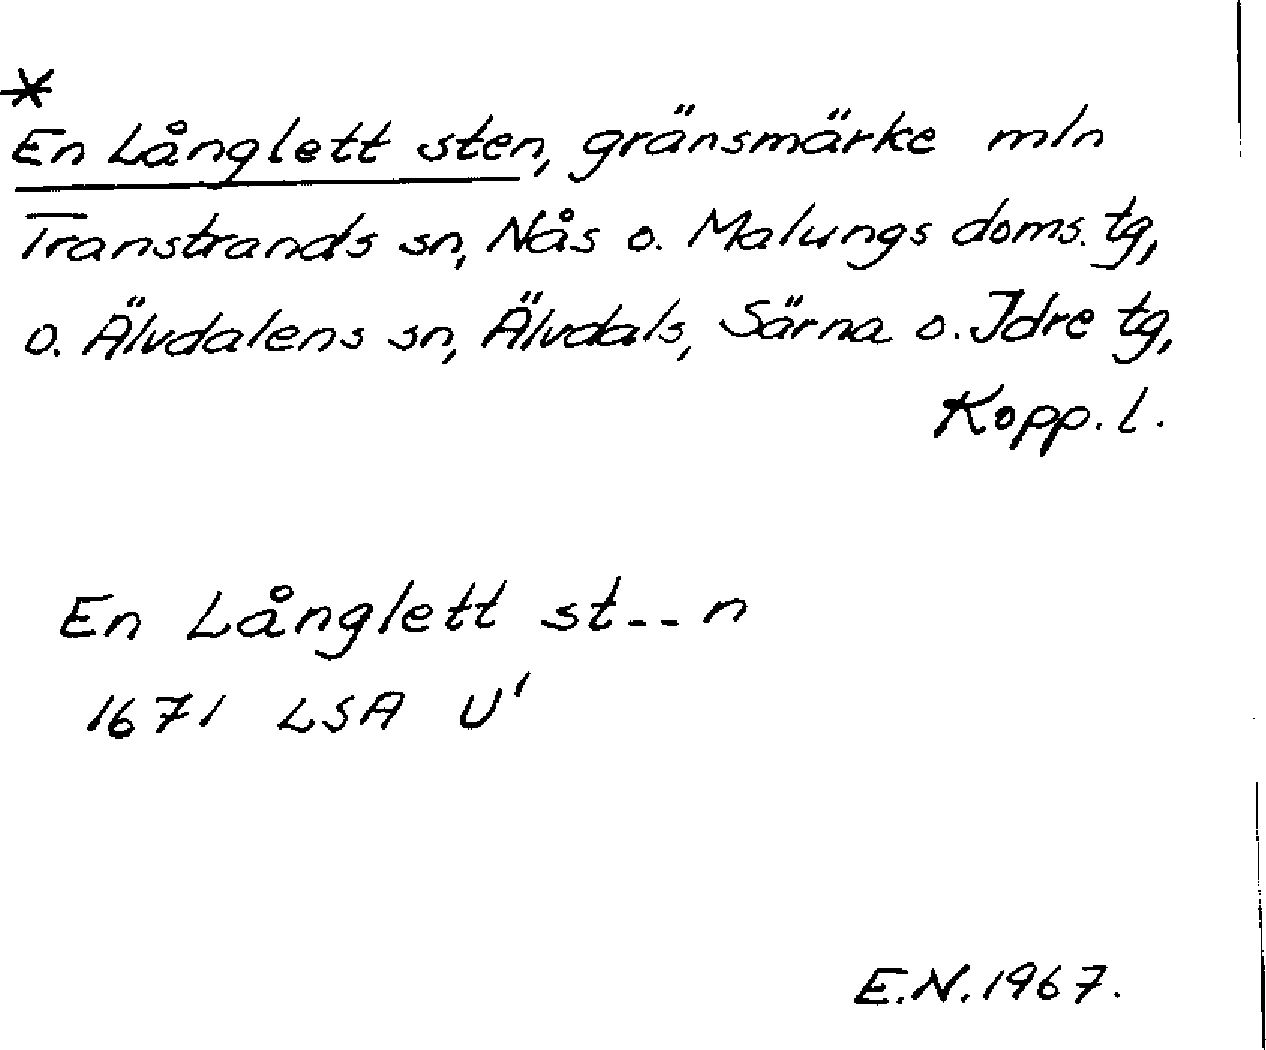 *
En Långlett sten, gränsmärke mln
Transtrands sn, Nås o. Malungs doms. tg,
o. Älvdalens sn, Älvdals, Särna o. Idre tg,
Kopp. l.
En Långlett st--n
1671 LSA U'
E.N. 1967.